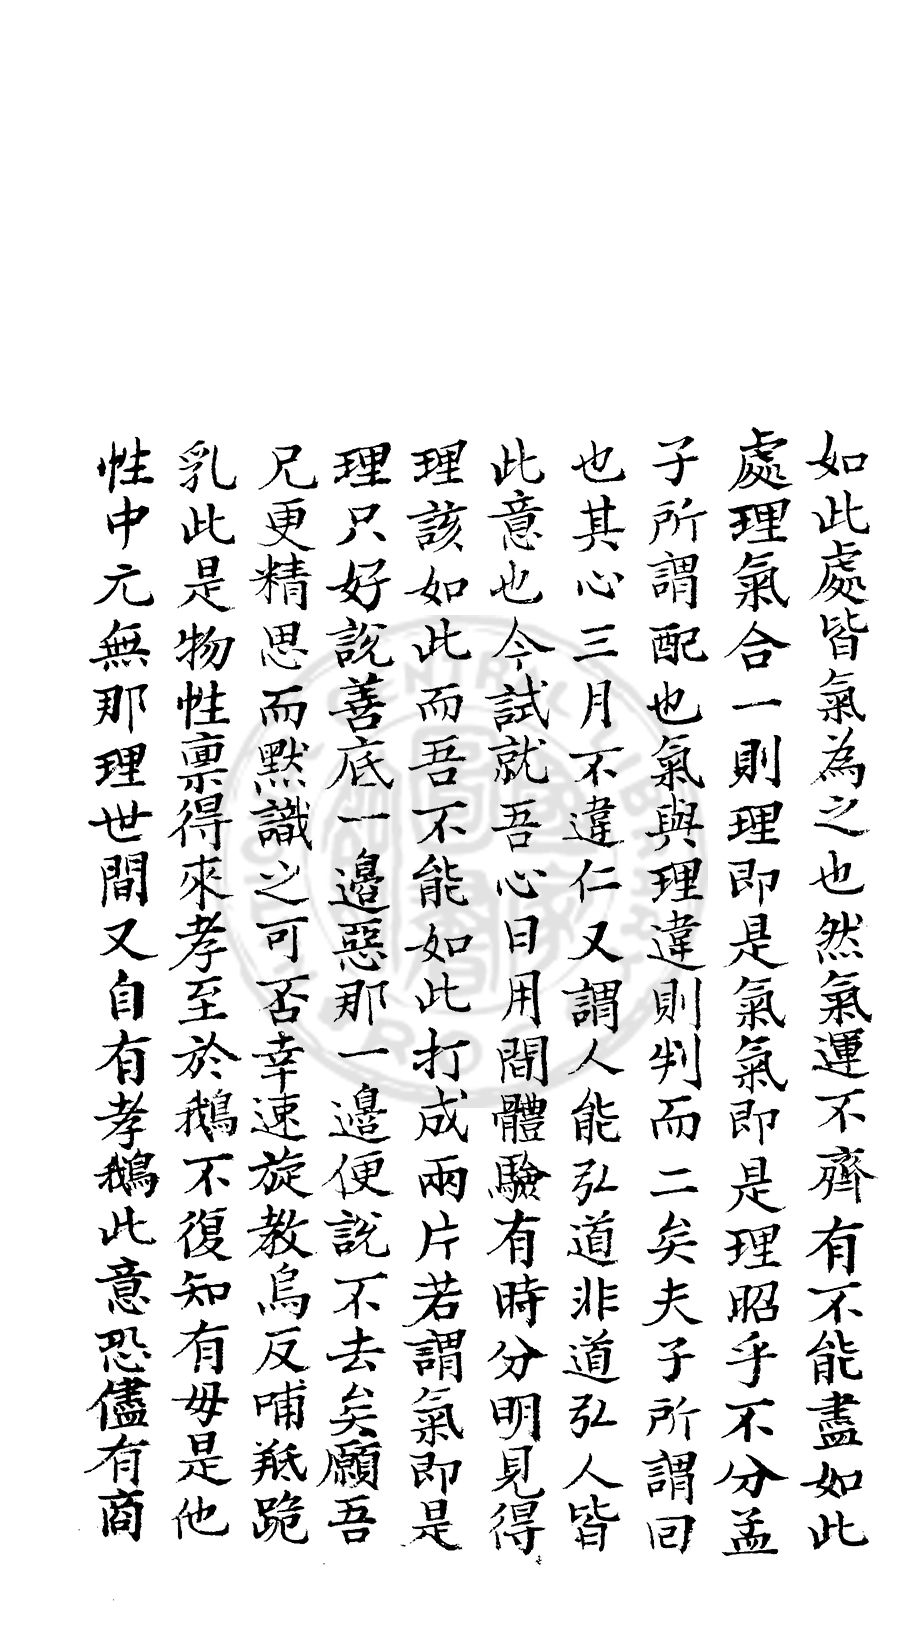 如此處皆氣為之也然氣運不齊有不能盡如此
處理氣合一則理即是氣氣即是理昭乎不分孟
子所謂配也氣與理違則判而二矣夫子所謂回
也其心三月不違仁又謂人能弘道非道弘人皆
此意也今試就吾心日用間體驗有時分明見得
理該如此而吾不能如此打成兩片若謂氣即是
理只好說善底一邊惡那一邊便說不去矣願吾
兄更精思而默識之可否幸速旋教烏反哺羝跪
乳此是物性禀得來孝至於鵝不復知有毋是他
性中元無那理世間又自有孝鵝此意恐儘有商